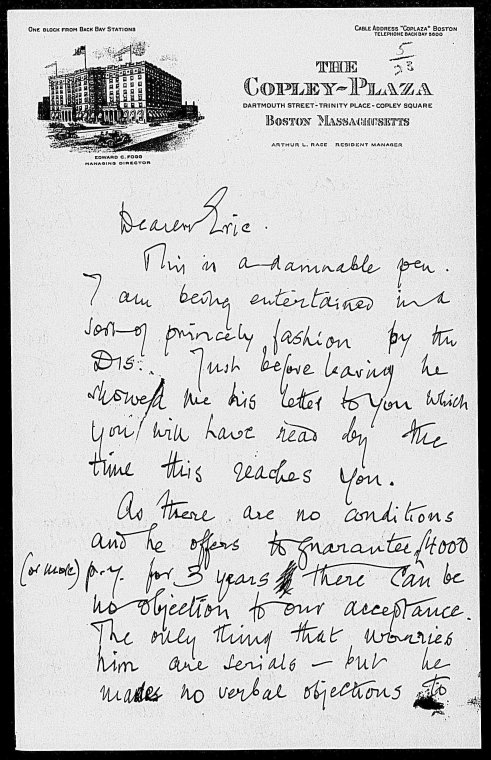 ONE BLOCK FROM BACK BAY STATIONS
CABLE ADDRESS "COPLAZA" BOSTON
TELEPHONE BACK BAY 5600
5
23
THE
COPLEY-PLAZA
DARTMOUTH STREET-TRINITY PLACE-COPLEY SQUARE
BOSTON MASSACHUSETTS
ARTHUR L. RACE RESIDENT MANAGER
EDWARD C. FOGG
MANAGING DIRECTOR
Dearest Eric.
This is a damnable pen.
I am being entertained in a
sort of princely fashion by the
Just before leaving he
showed me his letter to you which
you will have read by the
time this reaches you.
As there are no conditions
and he offers to guarantee £4000
(or more) p.y. for 3 years there can be
no objection to our acceptance.
The only thing that worries
him are serials – but he
makes no verbal objections to